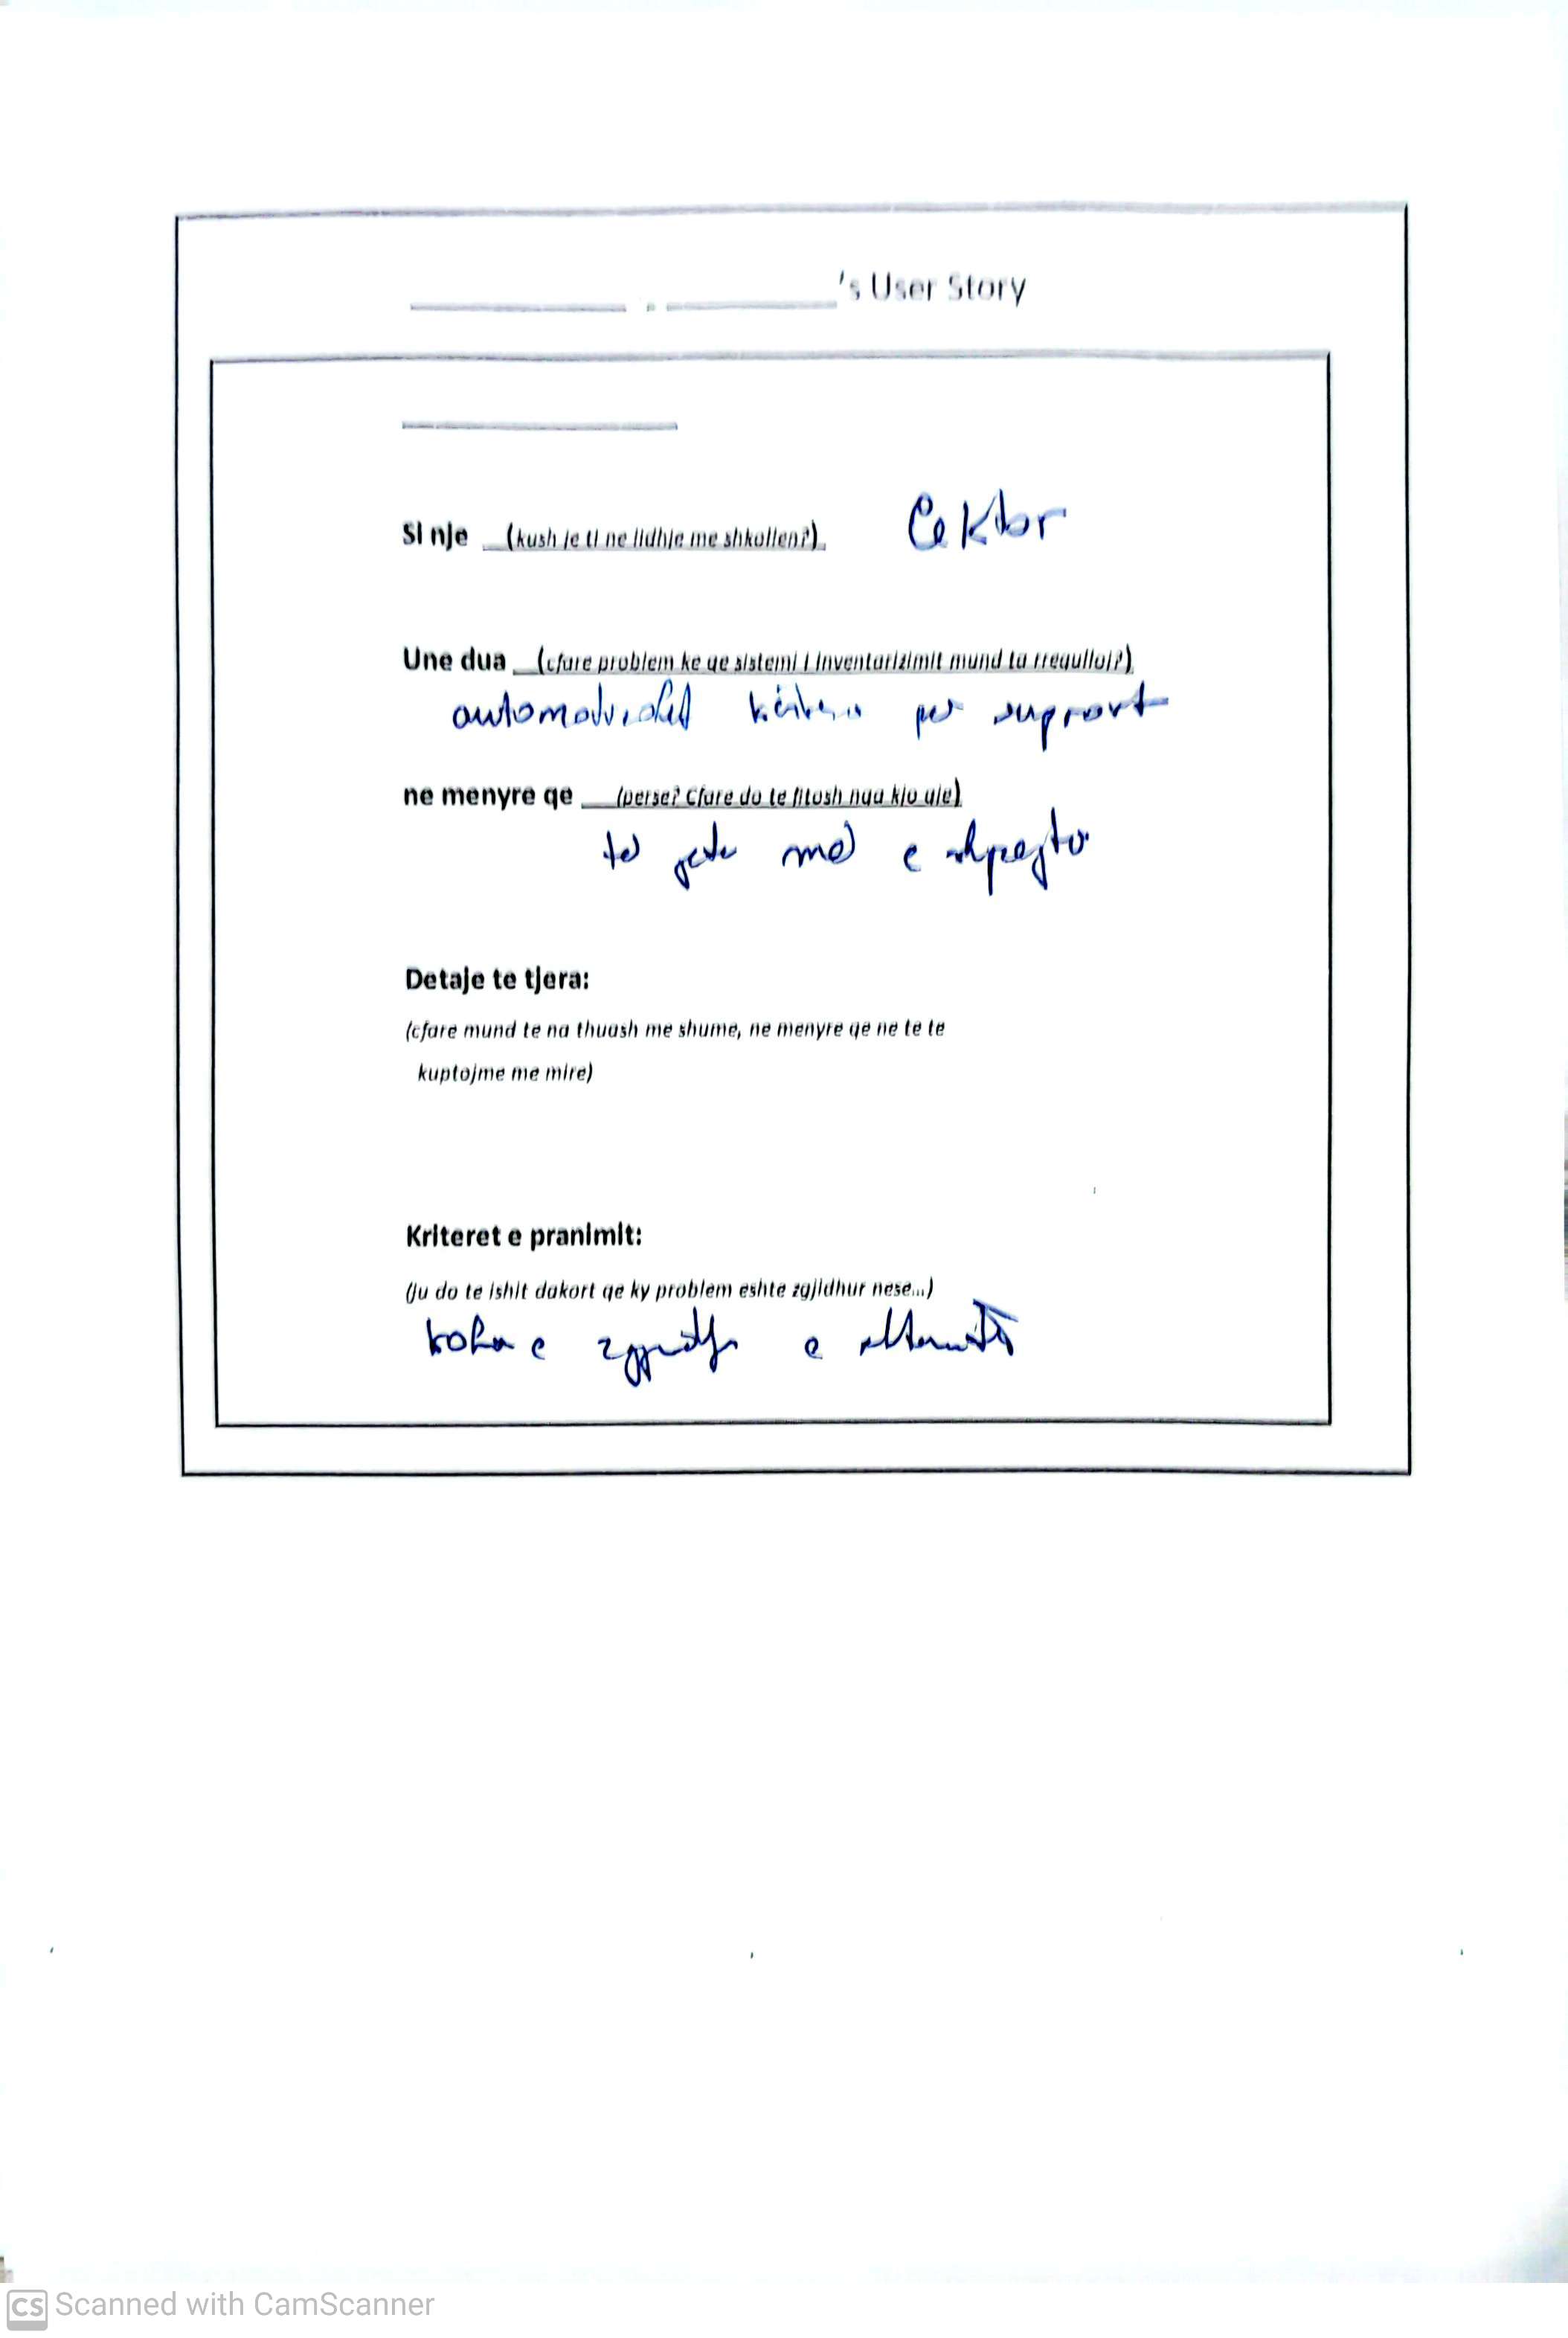 ________ . ________'s User Story
Si nje __(kush je ti ne lidhje me shkollen?)_
Une dua __(cfare problem ke qe sistemi i inventarizimit mund ta rregulloi?)
per support
ne menyre qe ___(perse? Cfare do te fitosh nga kjo gje)
të jetë më e shpejtë
Detaje te tjera:
(cfare mund te na thuash me shume, ne menyre qe ne te te
kuptojme me mire)
Kriteret e pranimit:
(Ju do te ishit dakort qe ky problem eshte zgjidhur nese...)
koha e zgjidhjes e
CS Scanned with CamScanner